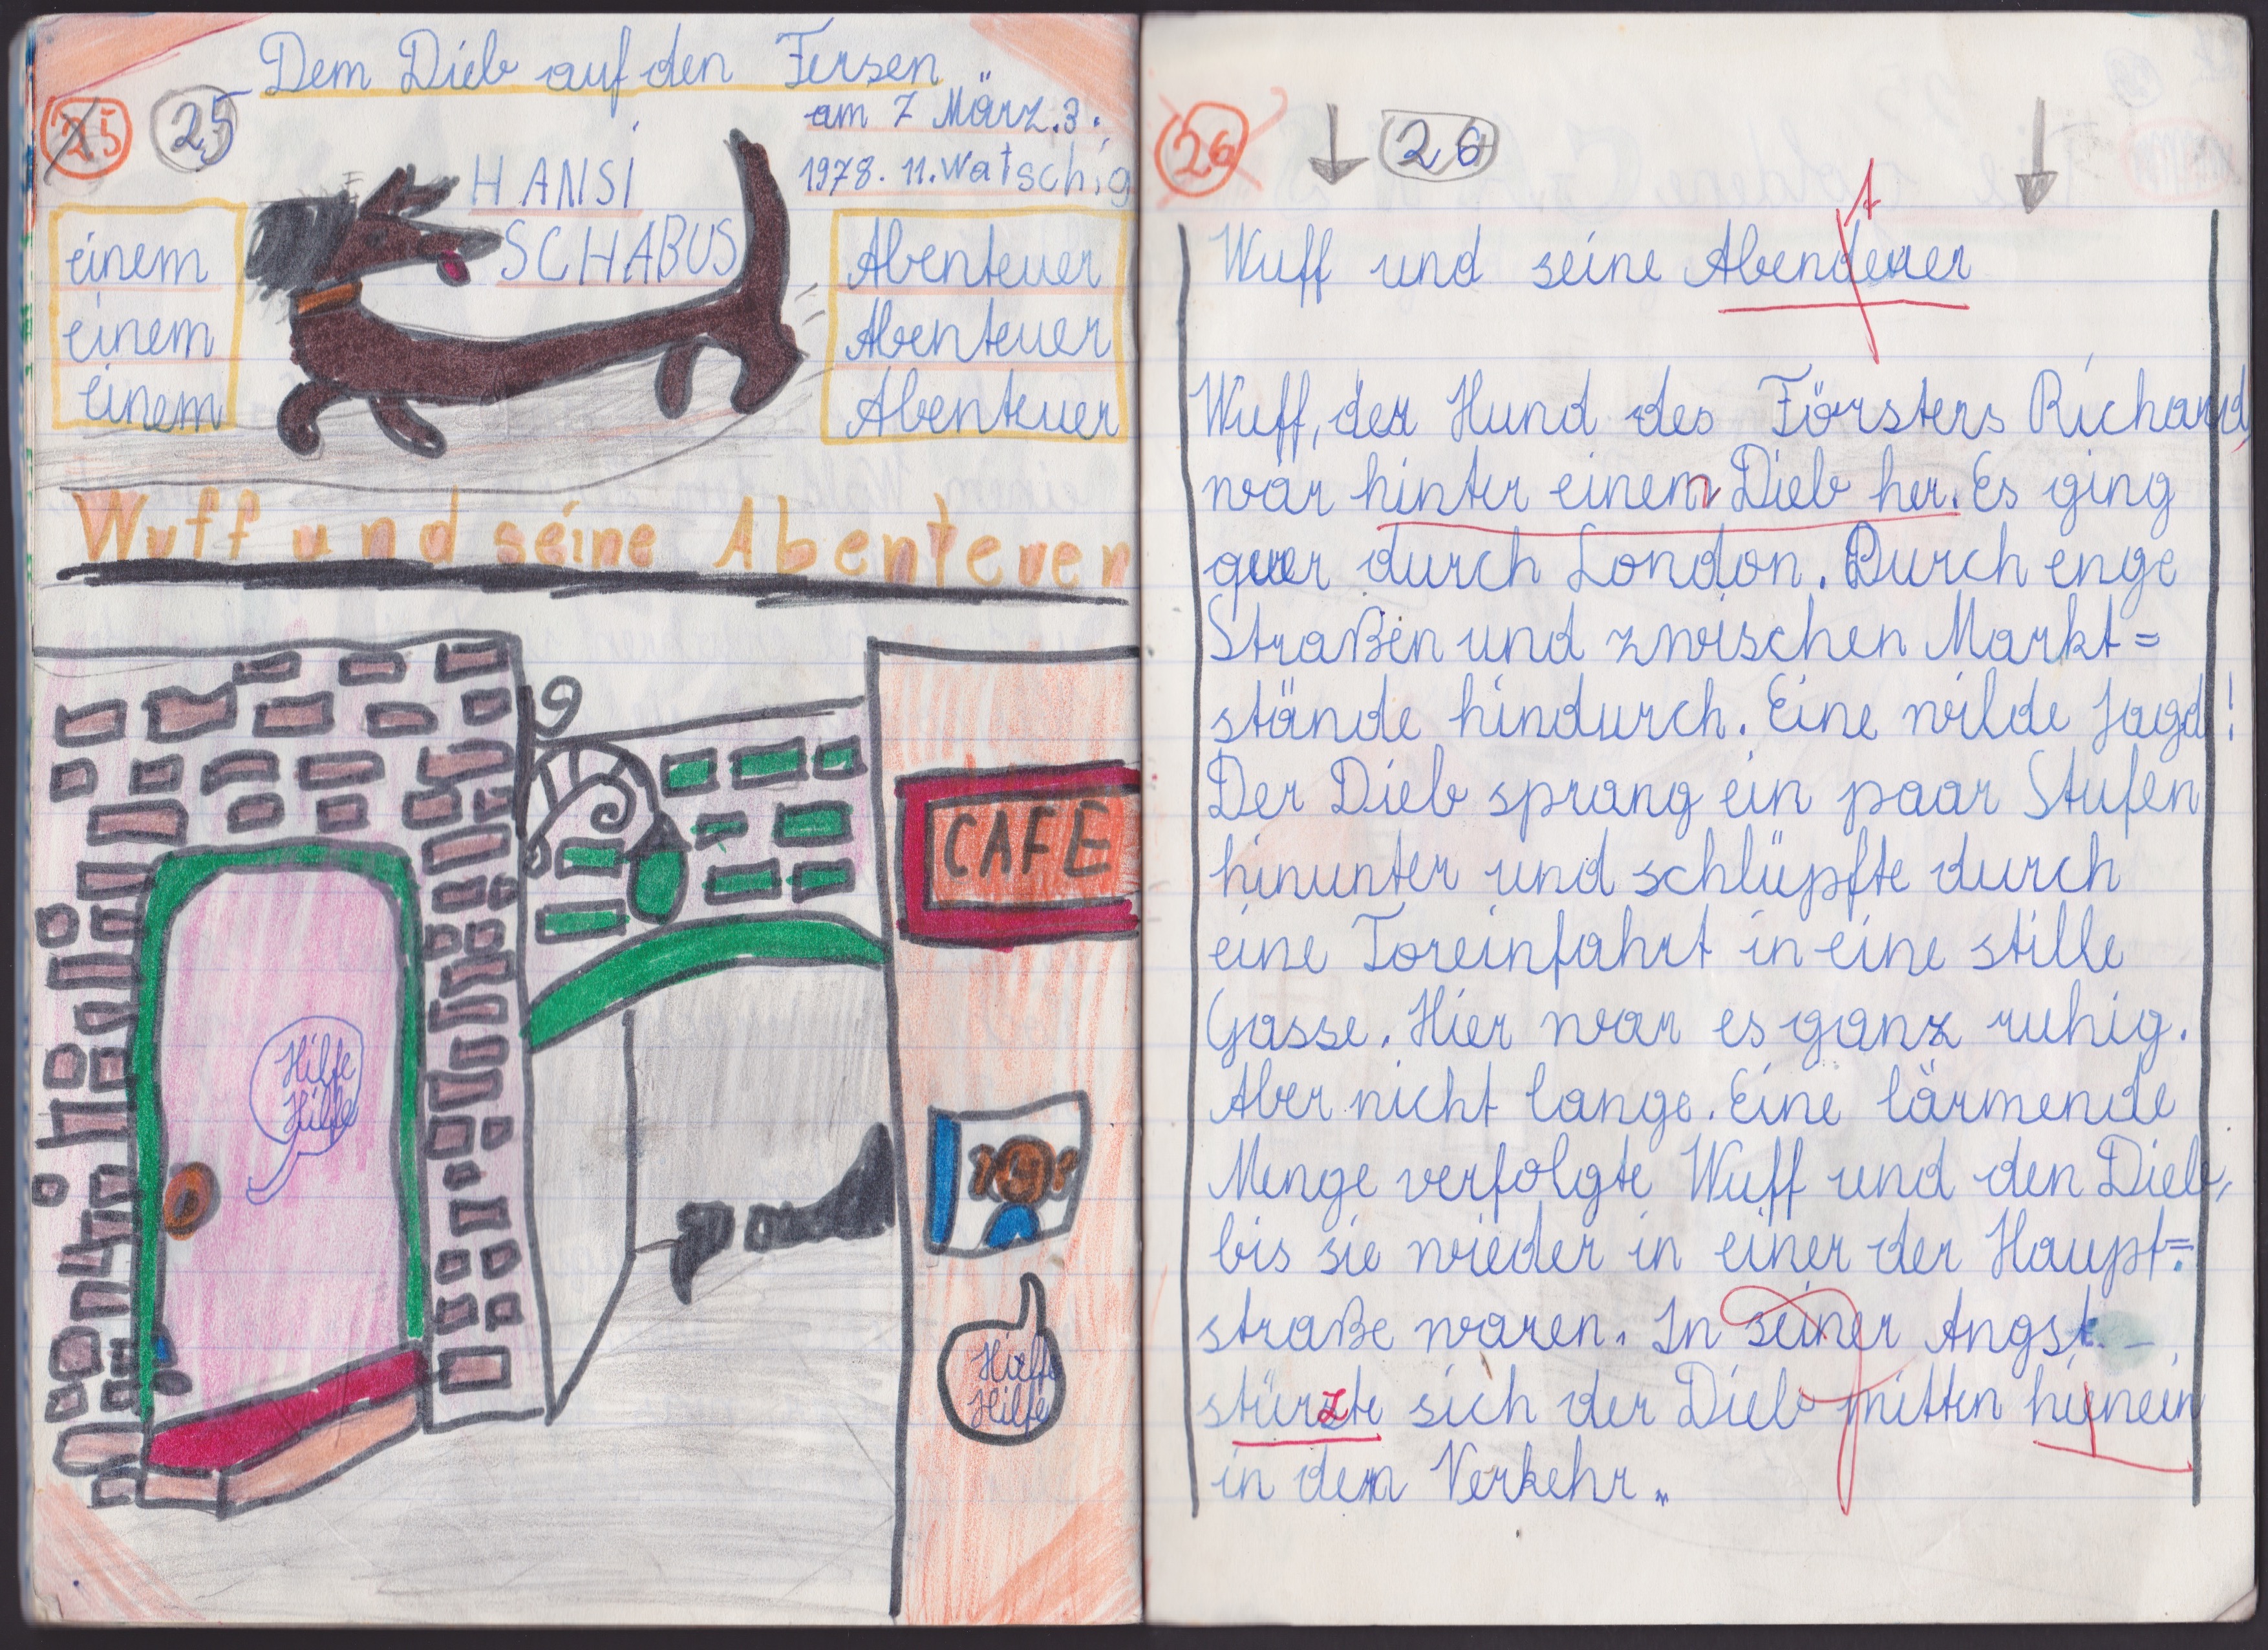 Dem Dieb auf den Fersen
25 25
am 7 März. 3.
1978. 11. Watschig
HANSI
SCHABUS
einem
einem
einem
Abenteuer
Abenteuer
Abenteuer
Wuff und seine Abenteuer
CAFE
Hilfe
Hilfe
Hielfe
Hilfe
26 26
Wuff und seine Abendeuer
t
Wuff, der Hund des Försters Richard,
war hinter einem Dieb her. Es ging
quer durch London. Durch enge
Straßen und zwischen Markt=
stände hindurch. Eine wilde Jagd!
Der Dieb sprang ein paar Stufen
hinunter und schlüpfte durch
eine Toreinfahrt in eine stille
Gasse. Hier war es ganz ruhig.
Aber nicht lange. Eine lärmende
Menge verfolgte Wuff und den Dieb,
bis sie wieder in einer der Haupt=
straße waren. In seiner Angst
stürzte sich der Dieb mitten hienein
in den Verkehr.